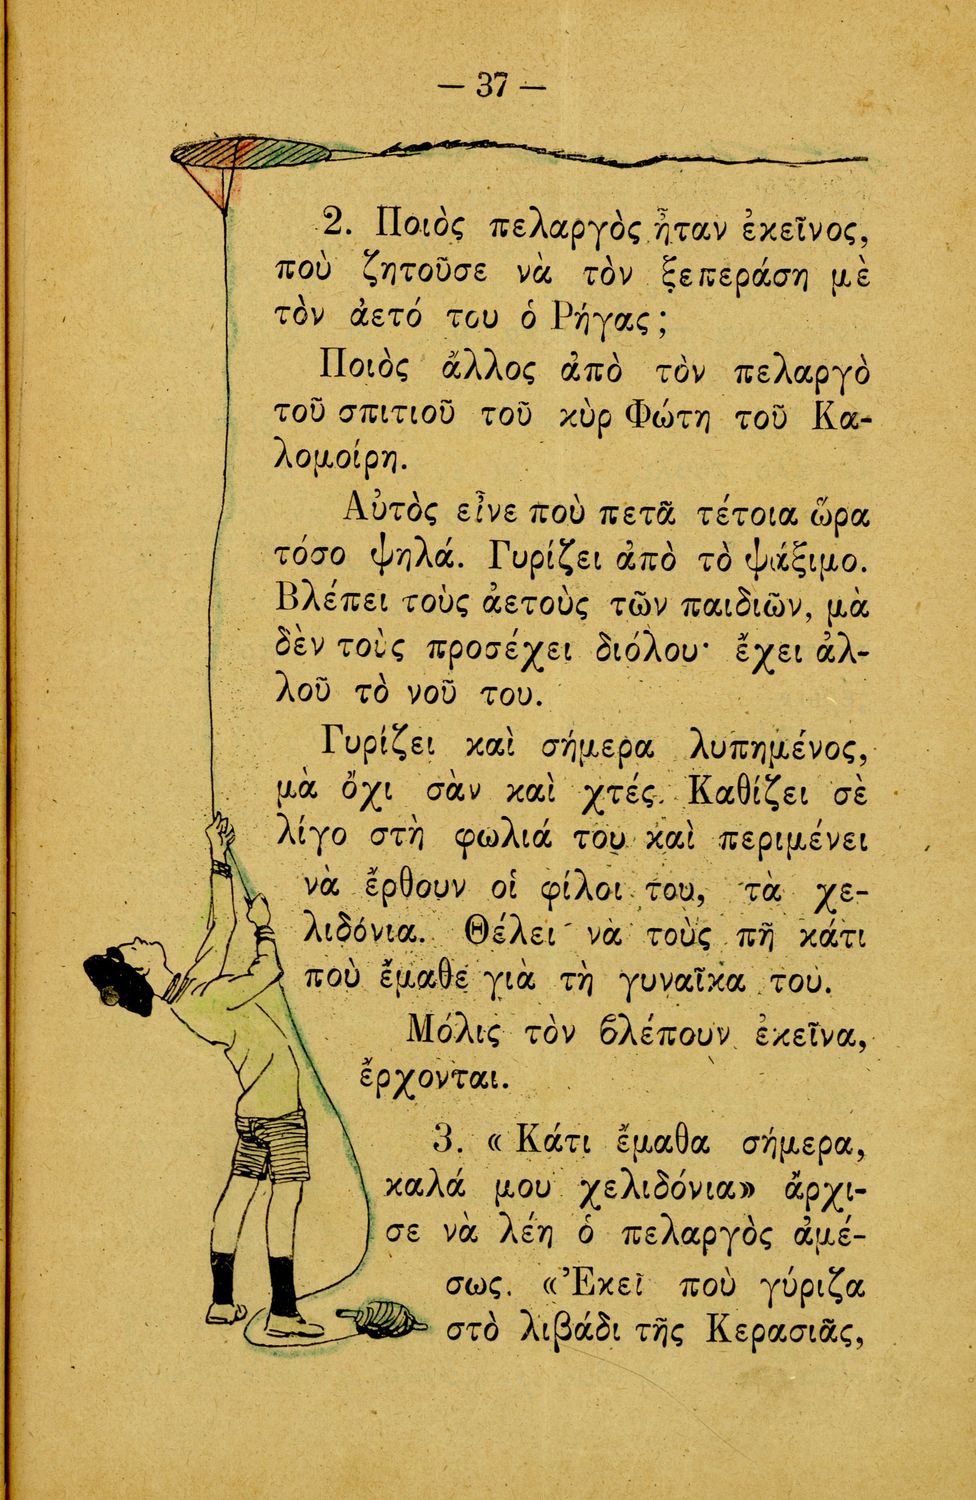 — 37 —
2. Ποιὸς πελαργὸς ἦταν ἐκεῖνος,
ποὺ ζητοῦσε νὰ τὸν ξεπεράση μὲ
τὸν ἀετό του ὁ Ρήγας;
Ποιὸς ἄλλος ἀπὸ τὸν πελαργὸ
τοῦ σπιτιοῦ τοῦ κὺρ Φώτη τοῦ Κα-
λομοίρη.
Αὐτὸς εἶνε ποὺ πετᾶ τέτοια ὥρα
τόσο ψηλά. Γυρίζει ἀπὸ τὸ ψάξιμο.
Βλέπει τοὺς ἀετοὺς τῶν παιδιῶν, μὰ
δὲν τοὺς προσέχει διόλου· ἔχει ἀλ-
λοῦ τὸ νοῦ του.
Γυρίζει καὶ σήμερα λυπημένος,
μὰ ὄχι σὰν καὶ χτές. Καθίζει σὲ
λίγο στὴ φωλιά του καὶ περιμένει
νὰ ἔρθουν οἱ φίλοι του, τὰ χε-
λιδόνια. Θέλει νὰ τοὺς πῆ κάτι
ποὺ ἔμαθε γιὰ τὴ γυναῖκα του.
Μόλις τὸν βλέπουν ἐκεῖνα,
ἔρχονται.
3. «Κάτι ἔμαθα σήμερα,
καλά μου χελιδόνια» ἄρχι-
σε νὰ λέη ὁ πελαργὸς ἀμέ-
σως. «Ἐκεῖ ποὺ γύριζα
στὸ λιβάδι τῆς Κερασιᾶς,